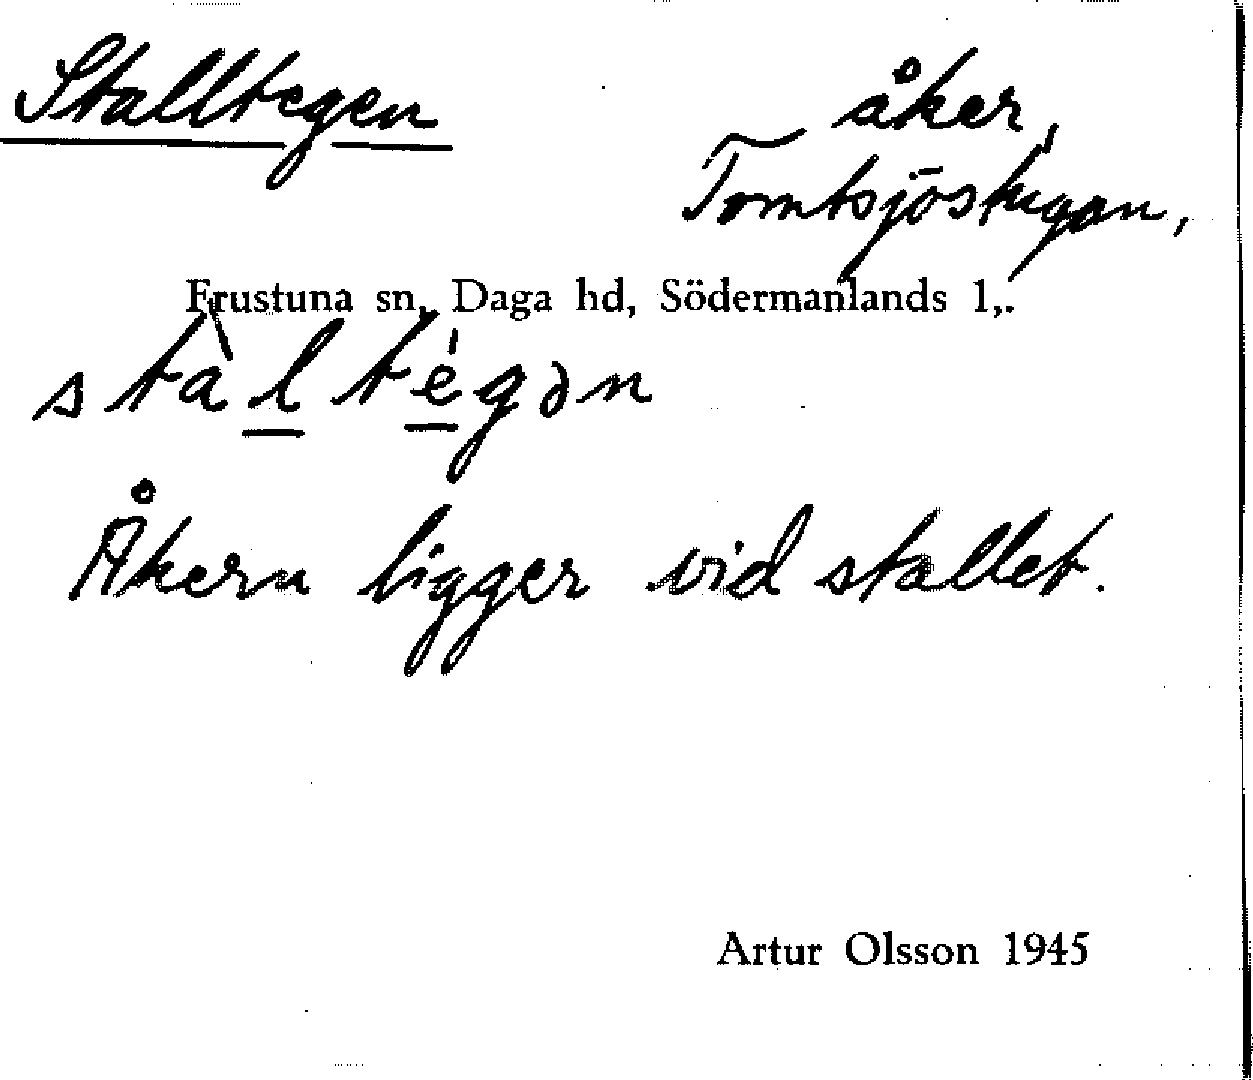 Stalltegen
åker,
Tomtsjöstugan,
Frustuna sn, Daga hd, Södermanlands l,.
stàl̲té̲gən
Åkern ligger vid stallet.
Artur Olsson 1945